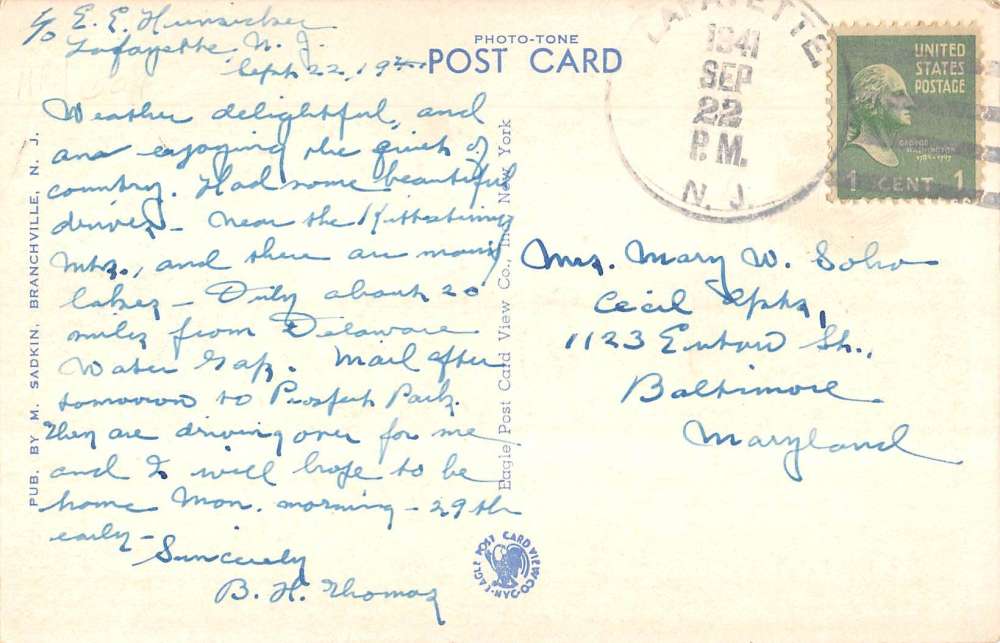 c/o E. E. Hunsicker
Lafayette, N. J.
Sept. 22, 19
PHOTO-TONE
POST CARD
LAFAYETTE
1941
SEP
22
P.M.
N. J.
UNITED
STATES
POSTAGE
GEORGE
WASHINGTON
1 CENT 1
Weather delightful, and
am enjoying the quiet of
country. Had some beautiful
drives - near the Kittatinny
Mts., and there are many
lakes - Only about 20
miles from Delaware
Water Gap. Mail after
tomorrow to Prospect Park.
They are driving over for me
and I will hope to be
home Mon. morning - 29th
early -
Sincerely
B. H. Thomas
PUB. BY M. SADKIN, BRANCHVILLE, N. J.
Eagle Post Card View Co., Inc. New York
Mrs. Mary W. Soho
Cecil Apts,
1123 Eutaw St.,
Baltimore
Maryland
EAGLE POST CARD VIEW CO. N.Y.C.